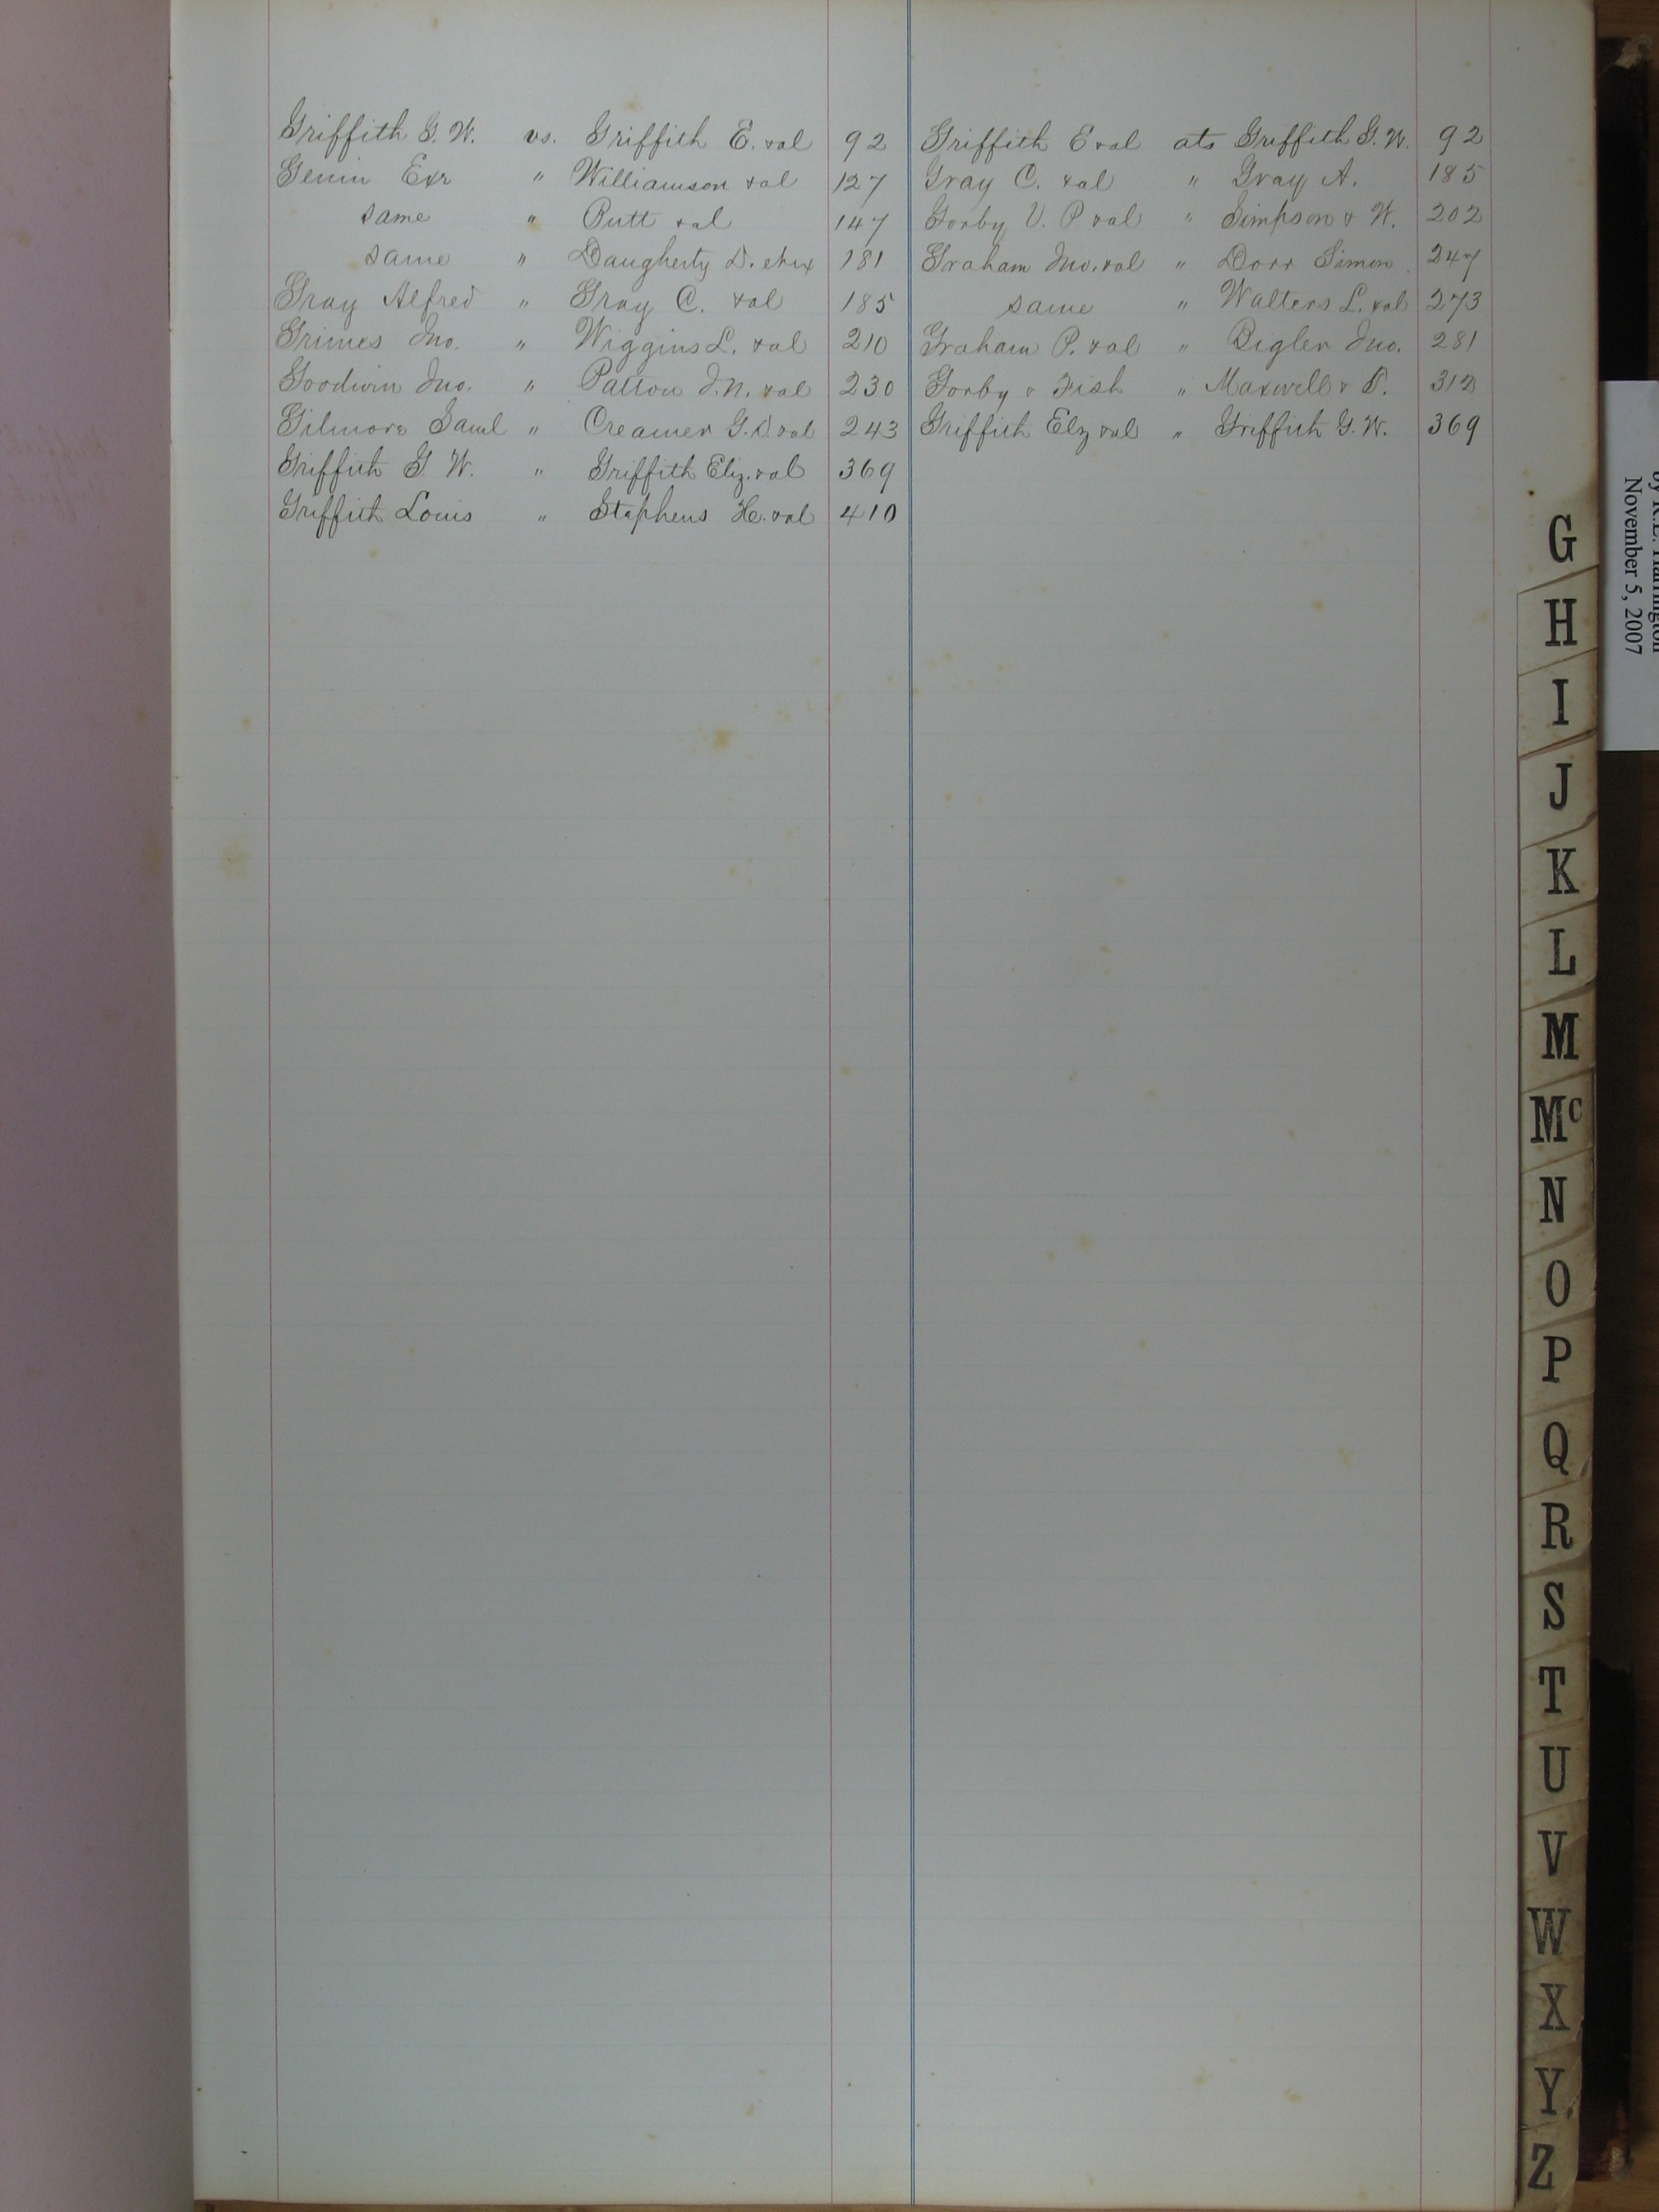 Griffith G. W. vs. Griffith E. &al 92
Genin Exr " Williamson &al 127
same " Butt &al 147
same " Daugherty D. et ux 181
Gray Alfred " Gray C. &al 185
Grimes Jno. " Wiggins L. &al 210
Goodwin Jno. " Patton J. N. &al 230
Gilmore Saml " Creamer G. D. &al 243
Griffith G. W. " Griffith Eliz. &al 369
Griffith Louis " Stephens H. &al 410
Griffith E &al ats Griffith G. W. 92
Gray C. &al " Gray A. 185
Gorby V. P &al " Simpson & W. 202
Graham Jno. &al " Dorr Simon 247
same " Walters L. &al 273
Graham P. &al " Bigler Jno. 281
Gorby & Fish " Maxwell & P. 312
Griffith Elz &al " Griffith G. W. 369
by R.E. Harrington
November 5, 2007
G
H
I
J
K
L
M
Mc
N
O
P
Q
R
S
T
U
V
W
X
Y
Z